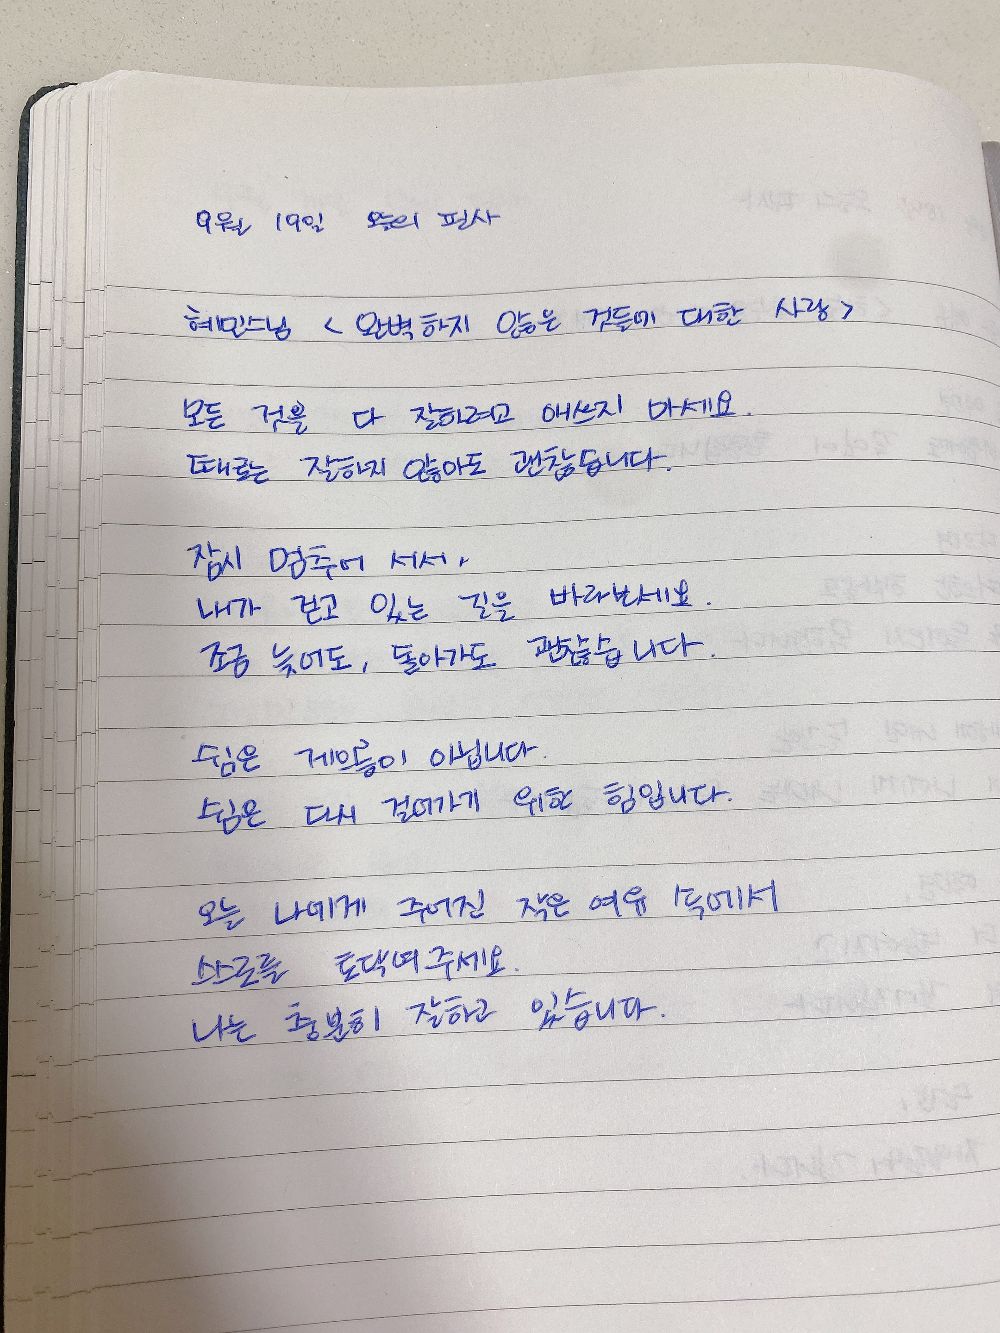 9월 19일 오늘의 필사
혜민스님 < 완벽하지 않은 것들에 대한 사랑 >
모든 것을 다 잘하려고 애쓰지 마세요.
때로는 잘하지 않아도 괜찮습니다.
잠시 멈추어 서서,
내가 걷고 있는 길을 바라보세요.
조금 늦어도, 돌아가도 괜찮습니다.
쉼은 게으름이 아닙니다.
쉼은 다시 걸어가기 위한 힘입니다.
오늘 나에게 주어진 작은 여유 속에서
스스로를 토닥여주세요.
나는 충분히 잘하고 있습니다.